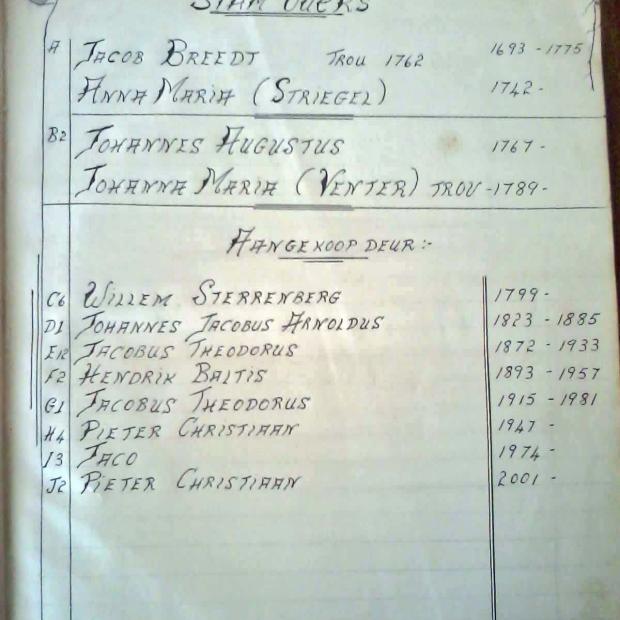 STAM OUERS
A JACOB BREEDT TROU 1762 1693 - 1775
ANNA MARIA (STRIEGEL) 1742 -
B2 JOHANNES AUGUSTUS 1767 -
JOHANNA MARIA (VENTER) TROU - 1789 -
AANGEKOOP DEUR :-
C6 WILLEM STERRENBERG 1799 -
D1 JOHANNES JACOBUS ARNOLDUS 1823 - 1885
E12 JACOBUS THEODORUS 1872 - 1933
F2 HENDRIK BALTIS 1893 - 1957
G1 JACOBUS THEODORUS 1915 - 1981
H4 PIETER CHRISTIAAN 1947 -
I3 JACO 1974 -
J2 PIETER CHRISTIAAN 2001 -